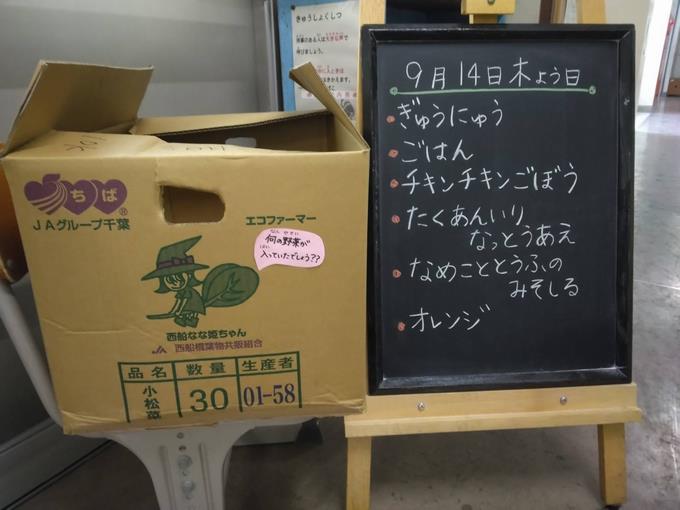 きゅうしょくしつ
ちば
®
JAグループ千葉
エコファーマー
何の野菜が
入っていたでしょう??
西船なな姫ちゃん
JA 西船橋葉物共販組合
品名 数量 生産者
小松菜 30 01-58
9月14日木よう日
ぎゅうにゅう
ごはん
チキンチキンごぼう
たくあんいり
なっとうあえ
なめことうふの
みそしる
オレンジ